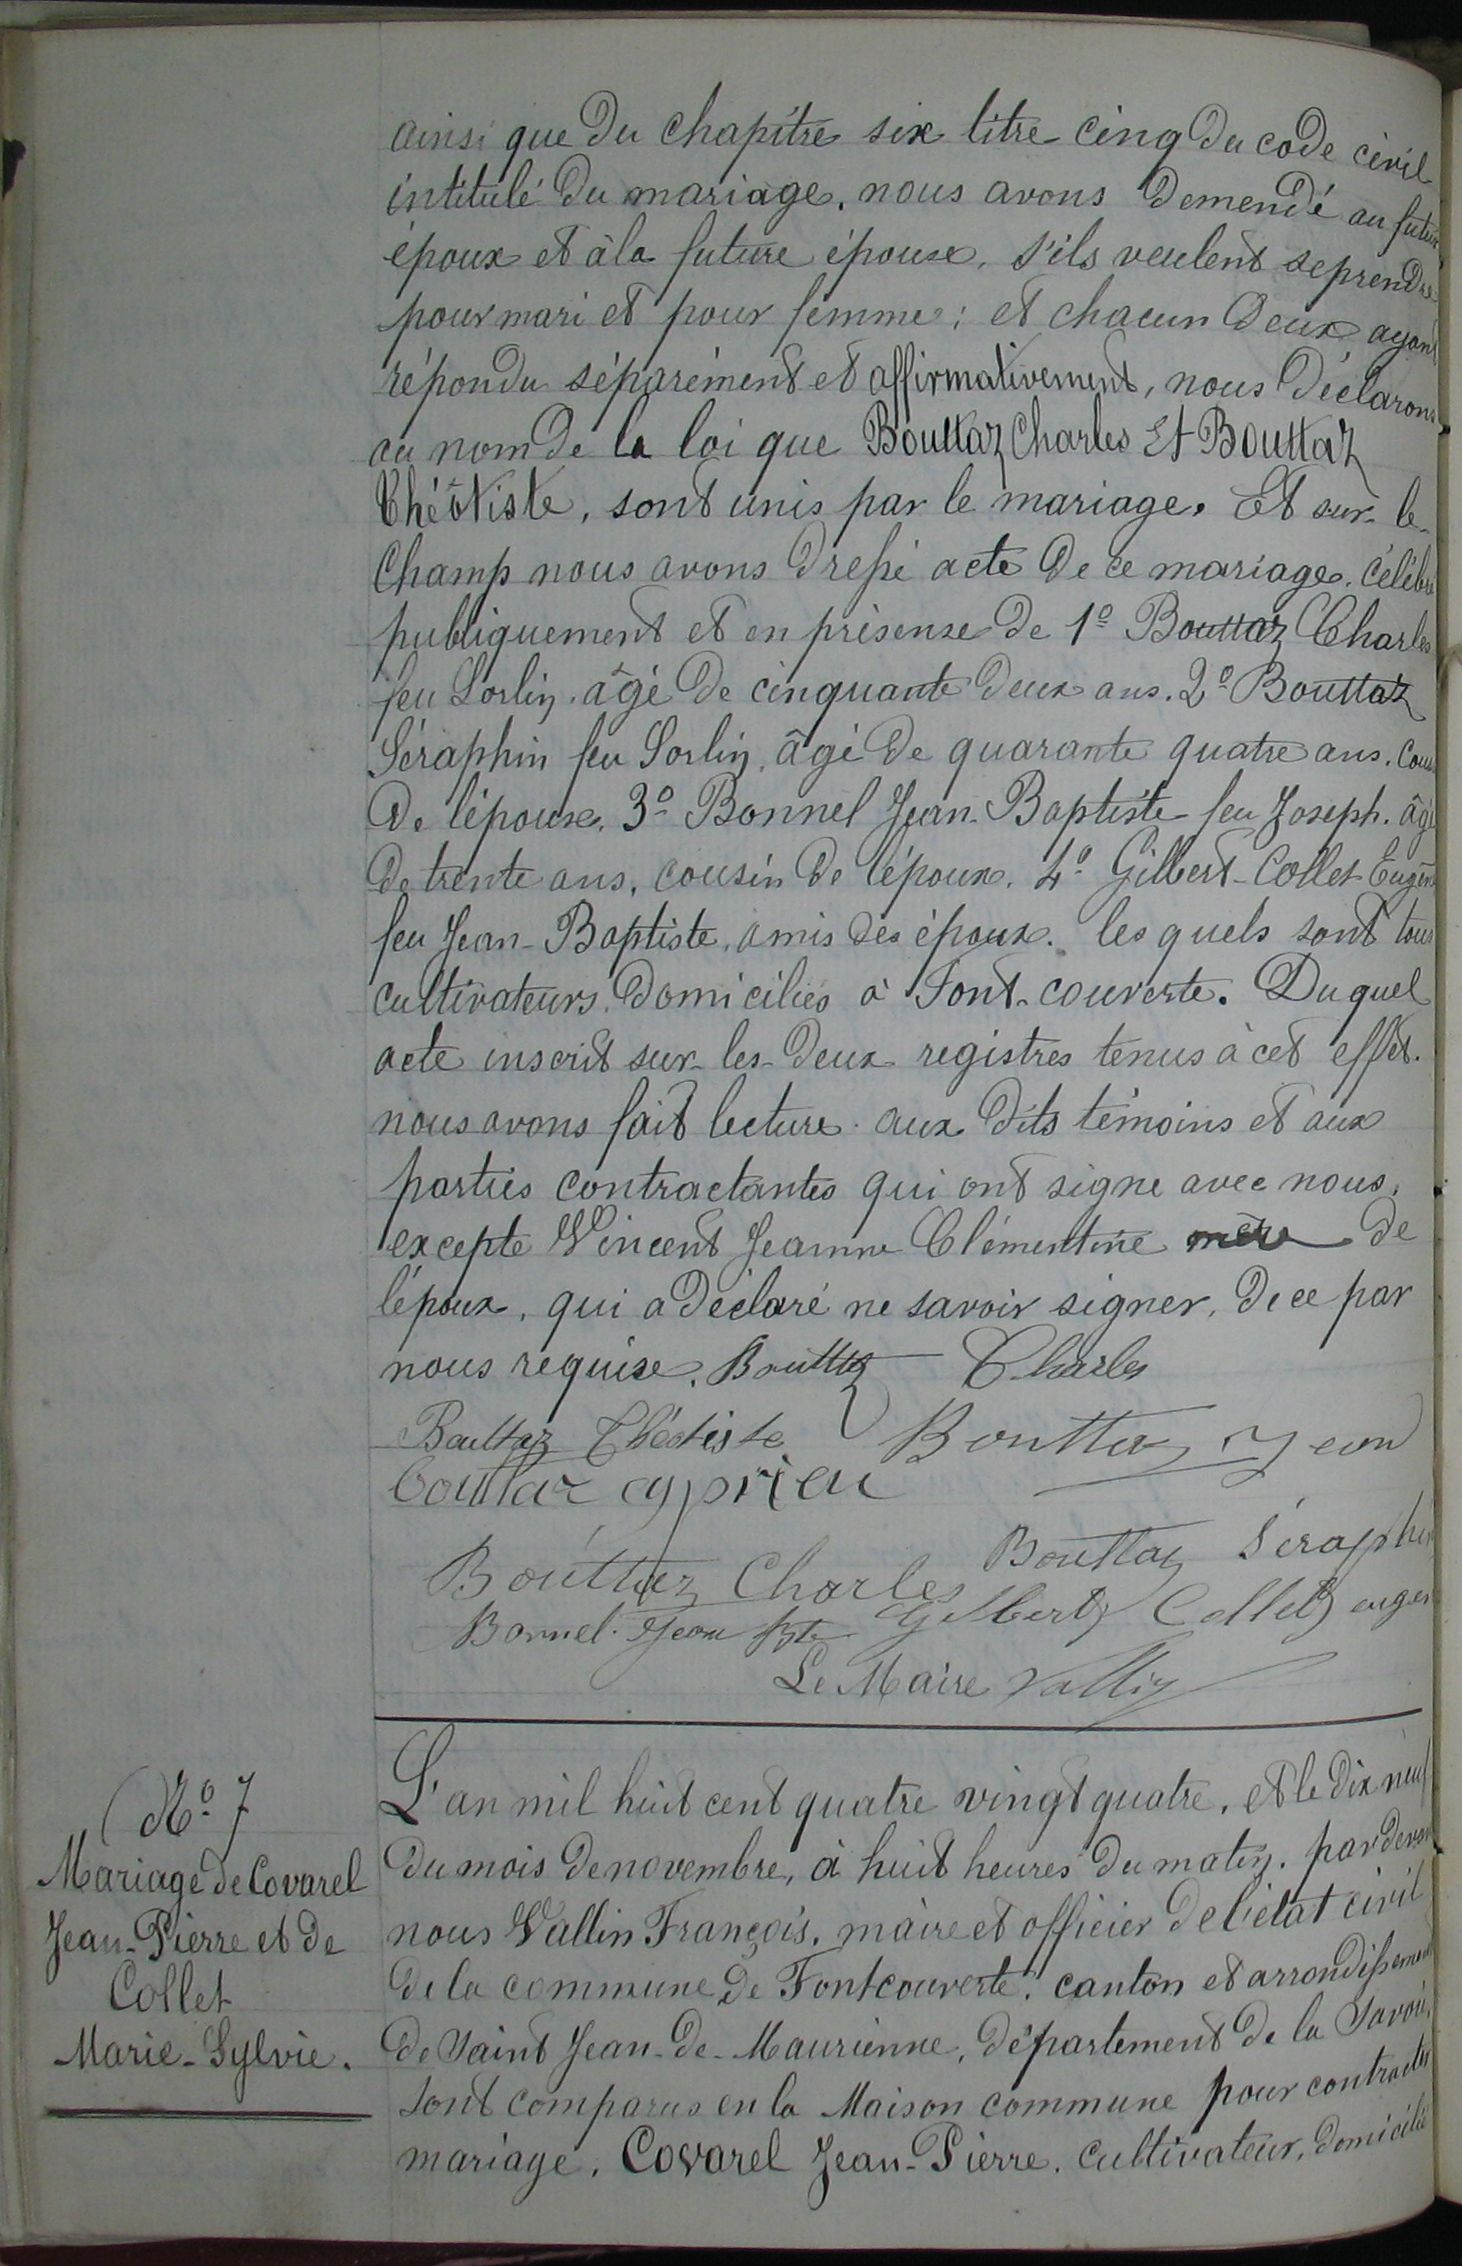 ainsi que du chapitre six titre cinq du code civil
intitulé du mariage, nous avons demendé au futur
époux et à la future épouse, s'ils veulent se prendre
pour mari et pour femme ; et chacun deux ayant
répondu séparément et affirmativement, nous déclarons
au nom de la loi que Bouttaz Charles Et Bouttaz
Théotiste, sont unis par le mariage. Et sur-le-
Champ nous avons dressé acte de ce mariage, célébré
publiquement et en présense de 1º Bouttaz Charles
feu Sorlin, âgé de cinquante deux ans. 2º Bouttaz
Séraphin feu Sorlin, âgé de quarante quatre ans,
de l'épouse. 3º Bonnel Jean-Baptiste feu Joseph, âgé
de trente ans, cousin de l'époux. 4º Gilbert-Collet Eugène
feu Jean-Baptiste, amis des époux. les quels sont tous
cultivateurs, domiciliés à Font-couverte. Du quel
acte inscrit sur les deux registres tenus à cet effet.
nous avons fait lecture aux dits témoins et aux
parties contractantes qui ont signe avec nous,
excepte Vincent Jeanne Clémentine mère de
l'époux, qui a déclaré ne savoir signer, de ce par
nous requise. Bouttaz Charles
Bouttaz Théotiste Bouttaz Jean
bouttaz cyprien
Bouttaz Charles Bouttaz Séraphin
Bonnel Jean Bte Gilbert Collet eugen
Le Maire Vallin
Nº 7
Mariage de Covarel
Jean-Pierre et de
Collet
Marie-Sylvie.
L'an mil huit cent quatre vingt quatre, et le dix neuf
du mois de novembre, à huit heures du matin, par devant
nous Vallin François, maire et officier de l'état civil
de la commune de Fontcouverte, canton et arrondissement
de Saint Jean-de-Maurienne, département de la Savoie,
sont comparus en la Maison commune pour contracter
mariage, Covarel Jean-Pierre, cultivateur, domicilié